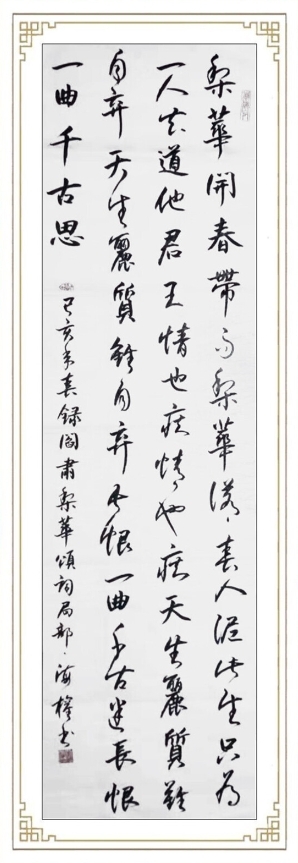 梨華開春帶雨梨華落春入泥此生只為
一人去道他君王情也痴情也痴天生麗質難
自弃天生麗質難自弃長恨一曲千古迷長恨
一曲千古思
己亥年春録閻肅梨華頌詞局部海书